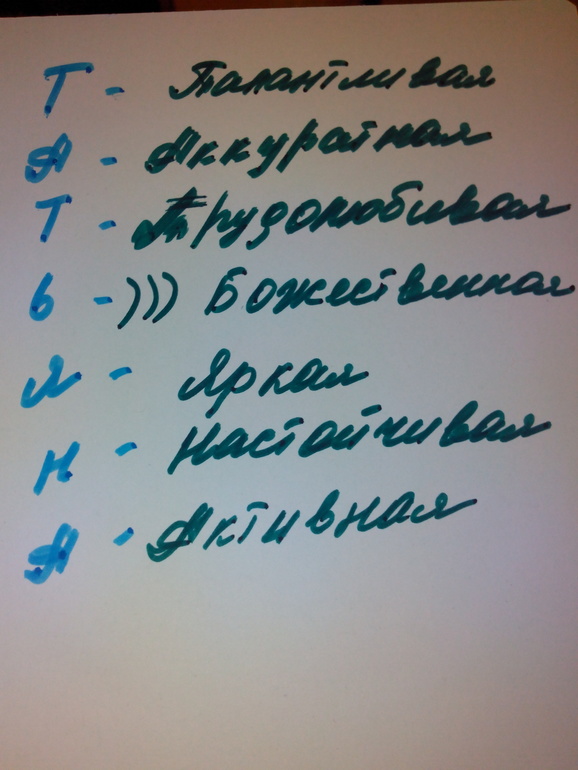 Т - Талантливая
А - Аккуратная
Т - Трудолюбивая
Ь -))) Божественная
Я - Яркая
Н - Настойчивая
А - Активная